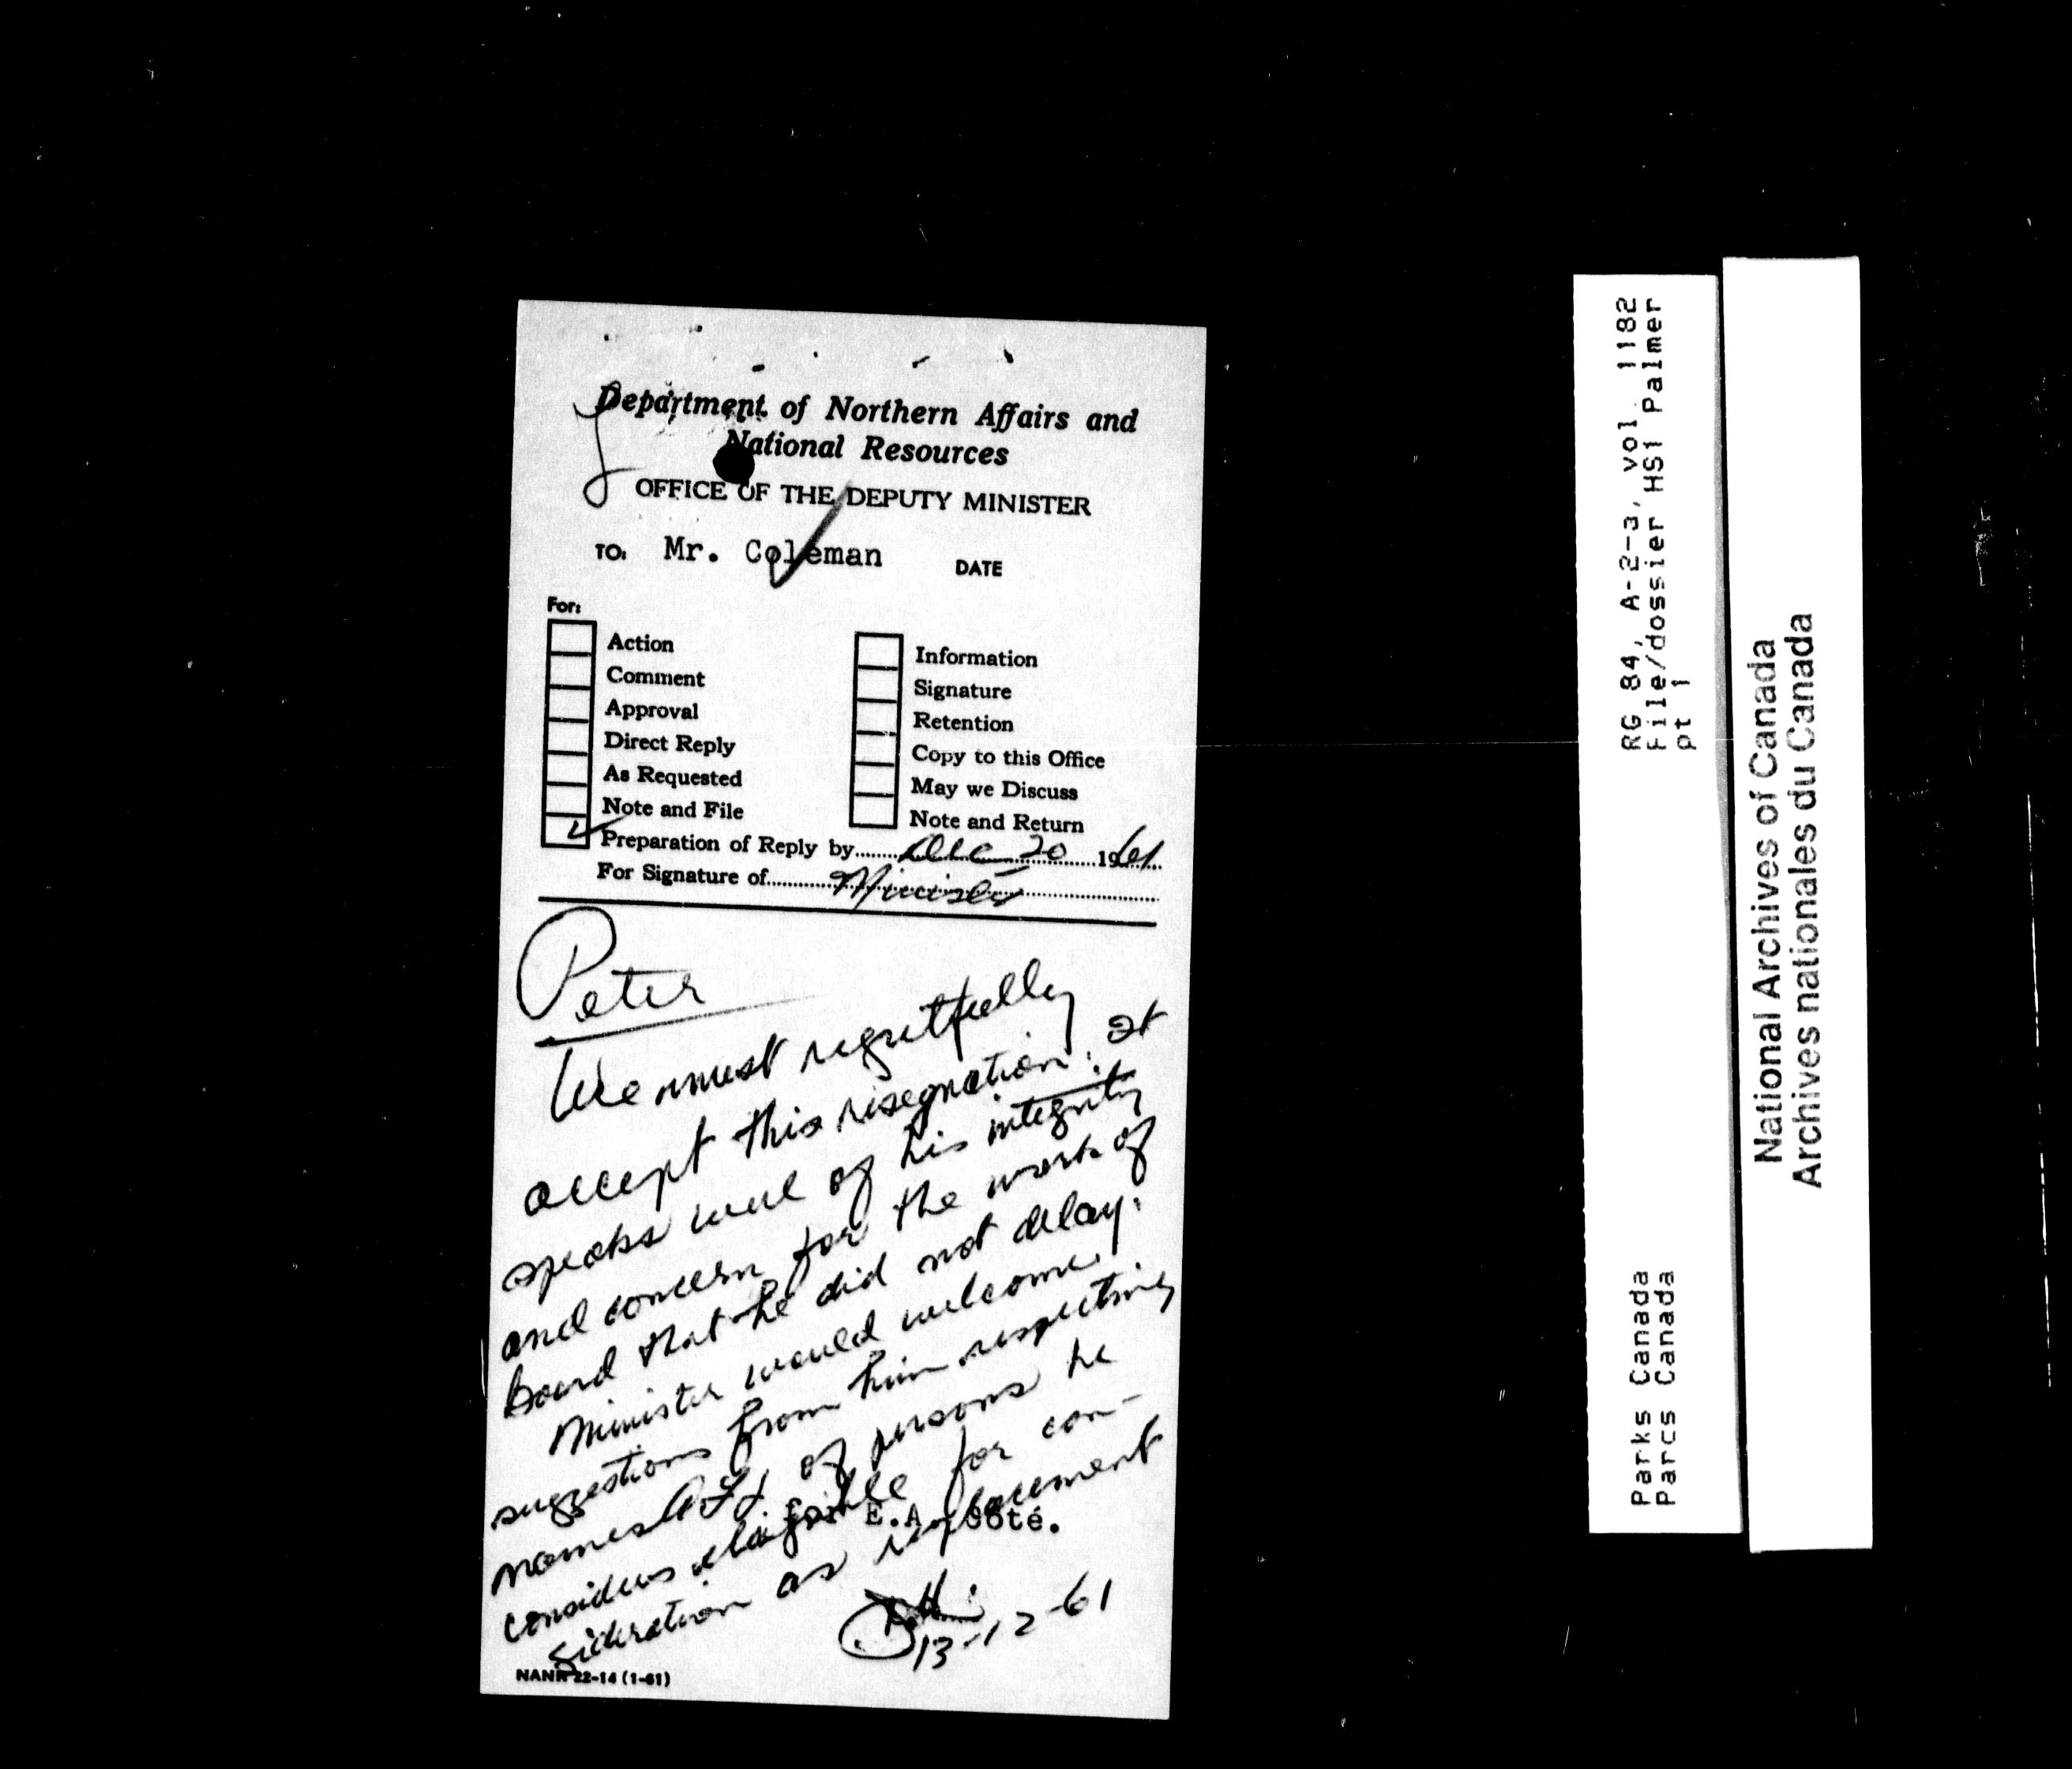 Department of Northern Affairs and
National Resources
OFFICE OF THE DEPUTY MINISTER
TO: Mr. Coleman DATE
For:
Action
Comment
Approval
Direct Reply
As Requested
Note and File
Information
Signature
Retention
Copy to this Office
May we Discuss
Note and Return
Preparation of Reply by Dec 20 1961
For Signature of Minister
Peter
We must regretfully
accept this resignation. It
speaks well of his integrity
and concern for the work of
board that he did not delay.
Minister would welcome
suggestions from him respecting
names of persons he
considers eligible for con-
sideration as replacement
for E.A. Côté.
13-12-61
NANR 22-14 (1-61)
RG 84, A-2-a, vol. 1182
File/dossier HS1 Palmer
pt 1
Parks Canada
Parcs Canada
National Archives of Canada
Archives nationales du Canada